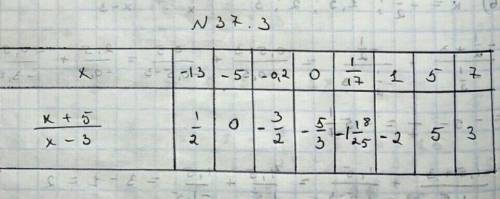 N 37.3
x | -13 | -5 | -0,2 | 0 | 1/17 | 1 | 5 | 7
x + 5 / x - 3 | 1/2 | 0 | -3/2 | -5/3 | -1 18/25 | -2 | 5 | 3